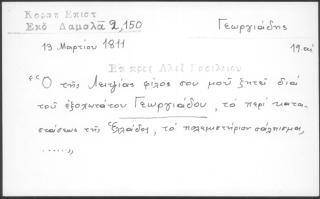 Κοραη Επιστ
Εκδ Δαμαλά 2,150
Γεωργιάδης
13 Μαρτίου 1811
19. αἰ
Ἐκ προς Αλεξ Βασιλείου
"Ὁ τῆς Λειψίας φίλος σου μοῦ ζητεῖ διὰ
τοῦ ἐξοχωτάτου Γεωργιάδου, τὸ περὶ κατα-
στάσεως τῆς Ἑλλάδος, τὸ πολεμιστήριον σάλπισμα,
......"